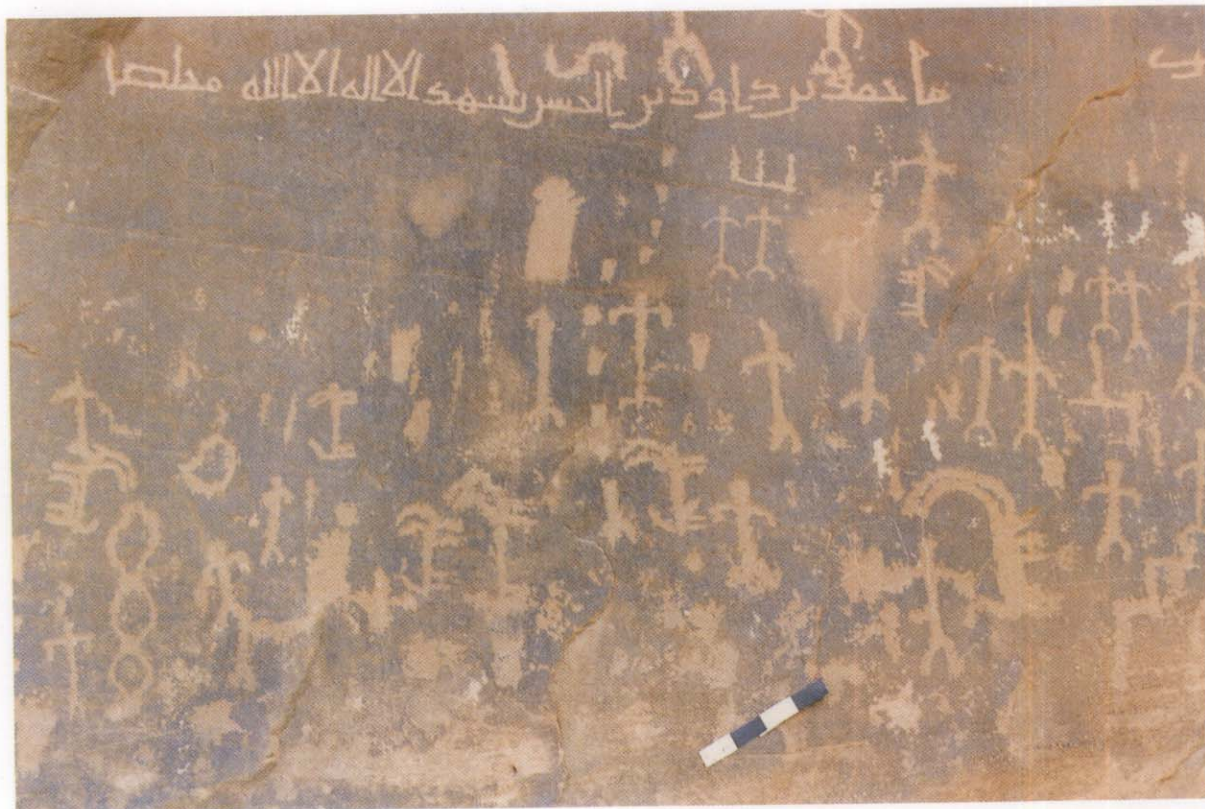 احمد بن داود بن الحسن يشهد الا اله الا الله مخلصا